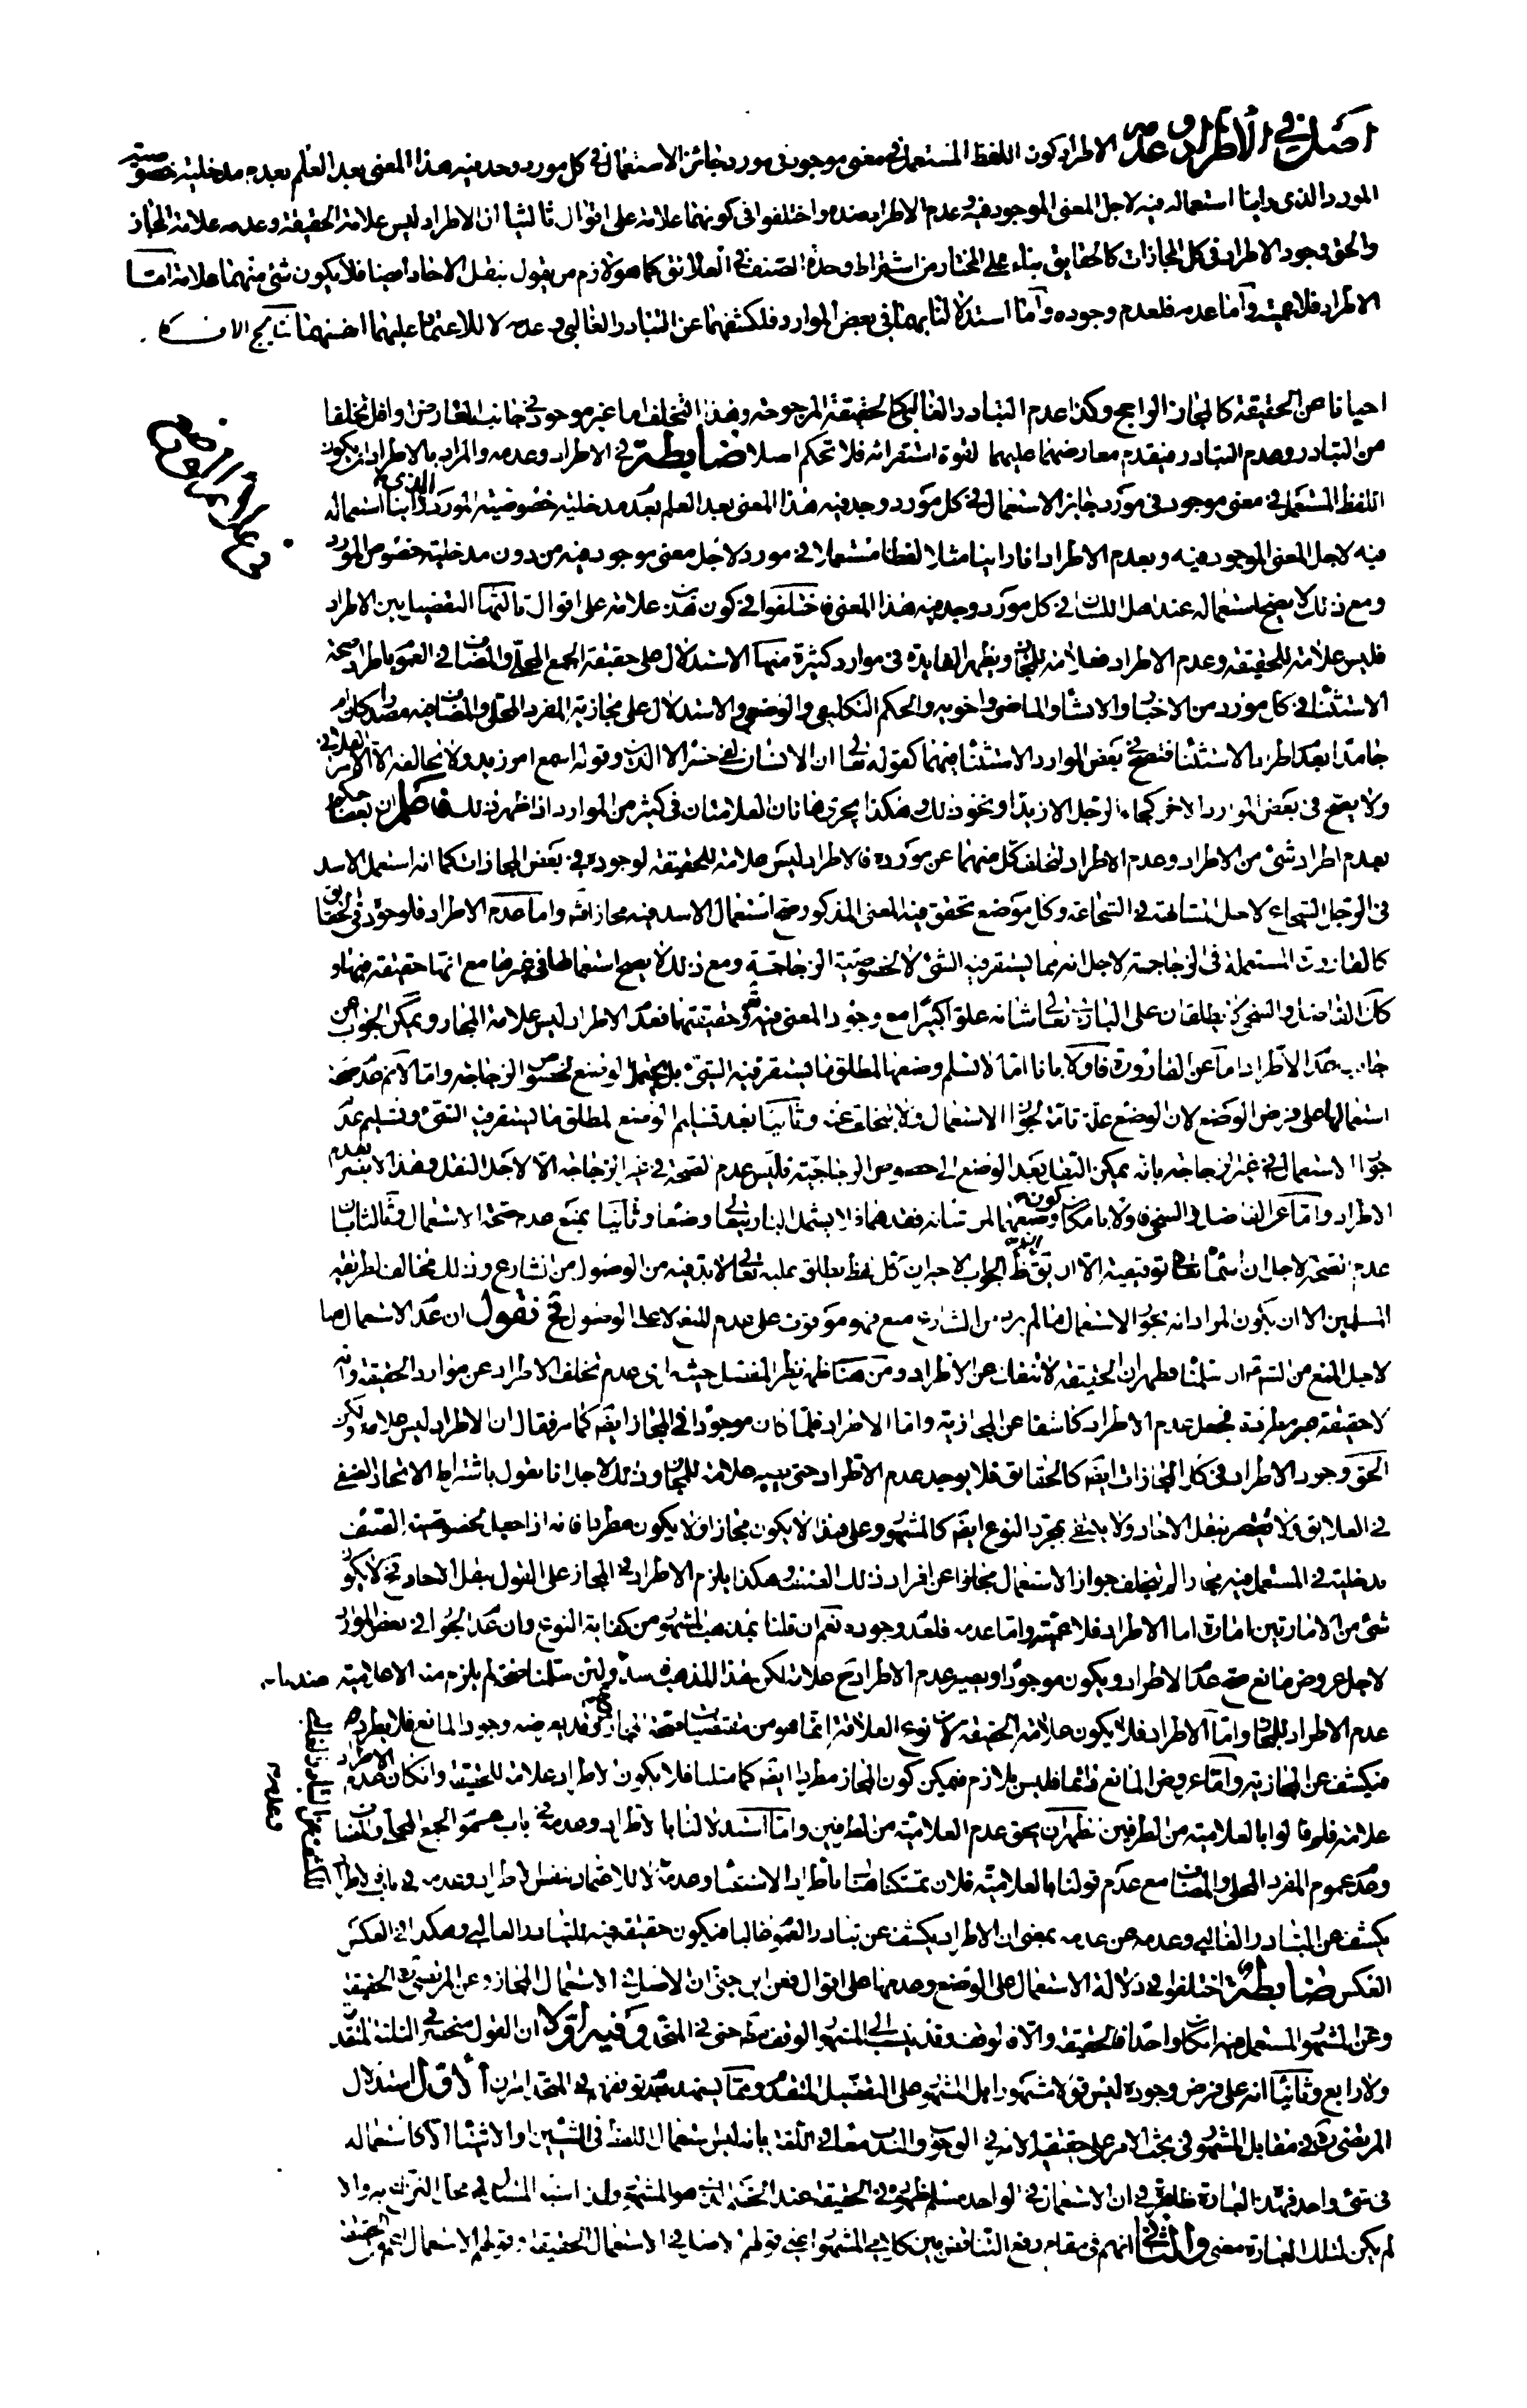 اصل في الاطراد وعدمه الاطراد كون اللفظ المستعمل في معنى موجود في مورد جائز الاستعمال في كل مورد وجد فيه هذا المعنى بعد العلم بعدم مدخلية خصوصية
المورد الذي راينا استعماله فيه لاجل المعنى الموجود فيه وعدم الاطراد ضده واختلفوا في كونهما علامة على اقوال ثالثها ان الاطراد ليس علامة الحقيقة وعدمه علامة المجاز
والحق وجود الاطراد في كل المجازات كالحقايق بناء على المختار من اشتراط وحدة الصنف في العلائق كما هو لازم من يقول بنقل الاحاد ايضا فلا يكون شئ منهما علامة امتا
الاطراد فلاعميته وامّا عدمه فلعدم وجوده وامّا استدلالنا بهما في بعض الموارد فلكشفهما عن التبادر الغالبي وعدمه لا للاعتماد عليهما انفسهما نتايج الافكار
احيانا عن الحقيقة كالمجاز الراجح وكذا عدم التبادر الغالبي كالحقيقة المرجوحة وهذا التخلف اما غير موجود في جانب المعارض او اقل تخلفا
من التبادر وعدم التبادر فيقدم معارضهما عليهما لقوة استقرائه فلا تحكم اصلا ضابطة في الاطراد وعدمه والمراد بالاطراد ان يكون
اللفظ المستعمل في معنى موجود في مورد جايز الاستعمال في كل مورد وجد فيه هذا المعنى بعد العلم بعدم مدخلية خصوصية المورد الذي راينا استعماله
فيه لاجل المعنى الموجود فيه وبعدم الاطراد اذا راينا مثلا لفظا مستعملا في مورد لاجل معنى موجود فيه من دون مدخلية خصوص المورد
ومع ذلك لا يصح استعماله عند اهل اللسان في كل مورد وجد فيه هذا المعنى فاختلفوا في كون هذين علامة على اقوال ثالثها التفصيل بين الاطراد
فليس علامة للحقيقة وعدم الاطراد فعلامة للمجاز ويظهر الفايدة في موارد كثيرة منها الاستدلال على حقيقة الجمع المحلى والمضاف في العموم باطراد صحة
الاستثناء في كل مورد من الاخبار والانشاء والماضي واخويه والحكم التكليفي والوضعي والاستدلال على مجازية المفرد المحلى والمضاف فيه مصدرا كان ام
جامدا بعدم اطراد الاستثناء فتصح في بعض الموارد الاستثناء منهما كقوله تعالى ان الانسان لفي خسر الا الذين وقوله اسمع امر زيد ولا تخالفه الا الامر الفلاني
ولا يصح في بعض الموارد الاخر كجاء الرجل الا زيدا ونحو ذلك وهكذا يجري هاتان العلامتان في كثير من الموارد اذا ظهر ذلك فاعلم ان بعضا حكم
بعدم اطراد شئ من الاطراد وعدم الاطراد لتخلف كل منهما عن مورده فالاطراد ليس علامة للحقيقة لوجوده في بعض المجازات كما انه استعمل الاسد
في الرجل الشجاع لاجل المشابهة في الشجاعة وكل موضع تحقق فيه المعنى المذكور صح استعمال الاسد فيه مجازا وامّا عدم الاطراد فلوجوده في الحقايق
كالقارورة المستعملة في الزجاجة لاجل انه مما يستقر فيه الشئ لا لخصوصية الزجاجية ومع ذلك لا يصح استعمالها في غيرها مع انها حقيقة فيها و
كك الفاضل والسخي لا يطلقان على الباري تعالى شانه علوا كبيرا مع وجود المعنى فيه وحقيقتهما فعدم الاطراد ليس علامة المجاز ويمكن الجواب عن
جانب عدم الاطراد امّا عن القارورة فاولا بانا امّا لا نسلم وضعها لمطلق ما يستقر فيه الشئ بل يحتمل الوضع لخصوص الزجاجة وامّا لا نم عدم صحة
استعمالها على فرض الوضع لان الوضع علة تامة لجواز الاستعمال فلا يتخلف عنه وثانيا بعد تسليم الوضع لمطلق ما يستقر فيه الشئ وتسليم عدم
جواز الاستعمال في غير الزجاجة بانه يمكن النقل بعد الوضع الى خصوص الزجاجية فليس عدم الصحة في غير الزجاجة الا لاجل النقل وهذا لا يضر بعدم
الاطراد وامّا عن الفاضل والسخي فاولا بامكان كون وضعهما لمن شانه فقدهما فلا يشمل الباري تعالى وضعا وثانيا بمنع عدم صحة الاستعمال وثالثا بان
عدم الصحة لاجل ان اسماء الله تعالى توقيفية الا ان يق ظ الجواب الاخير ان كل لفظ يطلق عليه تعالى لابد فيه من الوصول من الشارع وذلك مخالف لطريقة
المسلمين الا ان يكون المراد انه يجوز الاستعمال ما لم يرد من الشارع منع فهو موقوف على عدم المنع لا على الوصول فح نقول ان عدم الاستعمال هنا
لاجل المنع من الشرع ان سلمنا فظهر ان الحقيقة لا تنفك عن الاطراد ومن هنا ظهر نظر المفصل حيث راى عدم تخلف الاطراد عن موارد الحقيقة وانه
لا حقيقة غير مطردة فجعل عدم الاطراد كاشفا عن المجازية وامّا الاطراد فلمّا كان موجودا في المجاز ايضا كما مر فقال ان الاطراد ليس علامة ولكن
الحق وجود الاطراد في كل المجازات ايضا كالحقائق فلا يوجد عدم الاطراد حتى يصير علامة للمجاز وذلك لاجل انا نقول باشتراط الاتحاد الصنفي
في العلايق ولا نقتصر بنقل الاحاد ولا نكتفي بمجرد النوع ايضا كالمشهور وعلى هذا لا يكون مجازا ولا يكون مطردا فانه اذا جعل لخصوصية الصنف
مدخلية في المستعمل فيه مجازا لم يتخلف جواز الاستعمال مجازا عن افراد ذلك الصنف وهكذا يلزم الاطراد في المجاز على القول بنقل الاحاد فح لا يكون
شئ من الامارتين امارة اما الاطراد فلاعميته وامّا عدمه فلعدم وجوده نعم ان قلنا بمذهب المشهور من كفاية النوع وان عدم الجواز في بعض الموارد
لاجل عروض مانع صح عدم الاطراد ويكون موجودا ويصير عدم الاطراد ح علامة لكن هذا المذهب فاسد ولئن سلمنا صحته لم يلزم منه الا علامية
عدم الاطراد للمجاز وامّا الاطراد فلا يكون علامة الحقيقة لان نوع العلاقة انما هو من مقتضيات صحة المجاز وقد يعرضه وجود المانع فلا يطرد
فيكشف عن المجازية وامّا عروض المانع دائما فليس بلازم فيمكن كون المجاز مطردا ايضا كما مثلنا فلا يكون الاطراد علامة للحقيقة وان كان عدم الاطراد
علامة فلو قالوا بالعلامية من الطرفين ظهر ان الحق عدم العلامية من الطرفين وامّا استدلالنا بالاطراد وعدمه في باب عموم الجمع المحلى والمضاف
وعدم عموم المفرد المحلى والمضاف مع عدم قولنا بالعلامية فلان تمسكنا هنا باطراد الاستثناء وعدمه لا للاعتماد بنفس الاطراد وعدمه
يكشف عن التبادر الغالبي وعدمه عن عدمه بمعنى ان الاطراد يكشف عن تبادر العموم غالبا فيكون حقيقة فيه للتبادر الغالبي وهكذا في العكس
العكس ضابطة اختلفوا في دلالة الاستعمال على الوضع وعدمها على اقوال فعن ابن جني ان الاصل في الاستعمال المجاز وعن المرتضى ره الحقيقة
وعن المشهور المستعمل فيه ان كان واحدا فالحقيقة والا فالوقف وقد ينسب الى المشهور الوقف مط حتى في المتحد وفيه اولا ان القول منحصر في الثلثة المتقدمة
ولا رابع وثانيا انه على فرض وجوده ليس قولا مشهورا بل المشهور على التفصيل المتقدم ومما يشهد بعدم توقفهم في المتحد امران الاول استدلال
المرتضى ره في مقابل المشهور في بحث الامر على حقيقة الامر في الوجوب والندب معا في اللغة بانه ليس استعمال اللفظ في الشيئين او الاشياء الا كاستعماله
في شئ واحد فهذه العبارة ظاهرة في ان الاستعمال في الواحد مسلم ظهوره في الحقيقة عند الخصم الذي هو المشهور
لم يكن لتلك العبارة معنى والثاني انهم في مقام رفع التناقض بين كلامي المشهور اعني قولهم الاصل في الاستعمال الحقيقة وقولهم الاستعمال اعم من الحقيقة